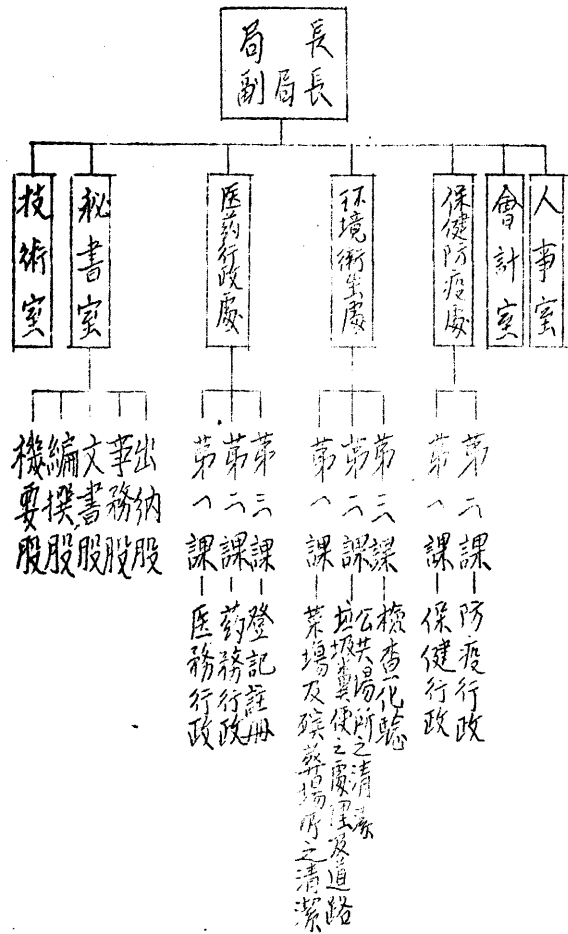 局長
副局長
技術室
秘書室
医药行政處
环境衛生處
保健防疫處
會計室
人事室
機要股
編撰股
文書股
事務股
出納股
第一課—医務行政
第二課—药務行政
第三課—登記註册
第一課—菜場及殡葬場所之清潔
第二課—垃圾糞便之處理及道路
公共場所之清潔
第三課—檢查化驗
第一課—保健行政
第二課—防疫行政